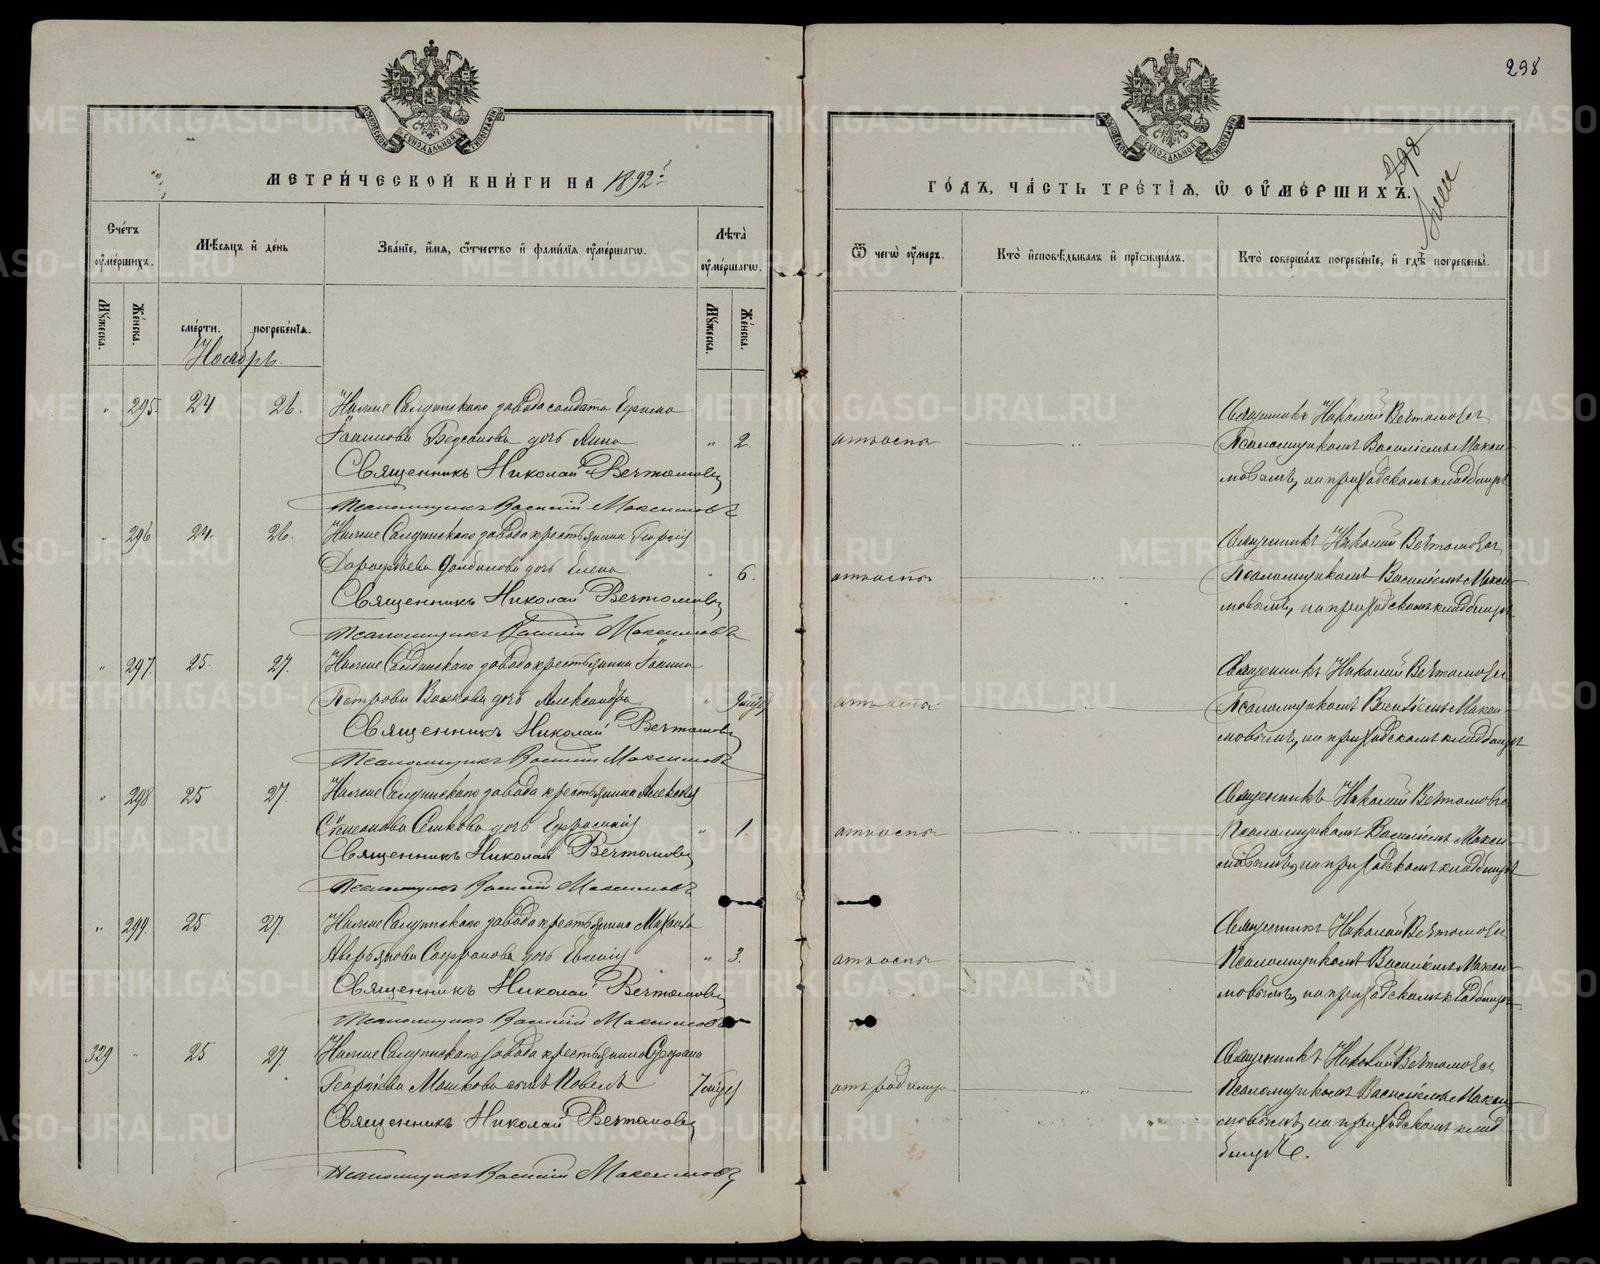 298
298
МЕТРИ́ЧЕСКОЙ КНИ́ГИ НА 1892 г.
ГО́ДЪ, ЧА́СТЬ ТРЕ́ТІѦ, Ѿ ОУ҆МЕ́РШИХЪ.
Сче́тъ оу҆ме́ршихъ.
Мѣ́сяцъ и҆ де́нь
Зва́ніе, и҆́мя, ѻ҆́тчество и҆ фами́лія оу҆ме́ршагѡ.
Лѣ́та оу҆ме́ршагѡ.
Мꙋ́жеска.
Же́нска.
сме́рти.
погребе́нїѧ.
Мꙋ́жеска.
Же́нска.
Ѿ чегѡ̀ оу҆́меръ.
Кто̀ и҆сповѣ́дывалъ и҆ прїѡбща́лъ.
Кто̀ соверша́лъ погребе́ніе, и҆ гдѣ̀ погребены̀.
Ноябрь.
„ 295. 24 26. Нижне Салдинскаго завода солдата Ефима
Іоаннова дочь Анна „ 2. отъ оспы
Священникъ Николай Вечтомовъ
Псаломщикъ Василій Максимовъ
Священникъ Николай Вечтомовъ
Псаломщикомъ Василіемъ Макси-
мовымъ, на приходскомъ кладбищѣ
„ 296 24. 26. Нижне Салдинскаго завода крестьянина Георгія
Дорофѣева дочь Елена „ 6. отъ оспы
Священникъ Николай Вечтомовъ
Псаломщикъ Василій Максимовъ
Священникъ Николай Вечтомовъ
Псаломщикомъ Василіемъ Макси-
мовымъ, на приходскомъ кладбищѣ
„ 297 25. 27. Нижне Салдинскаго завода крестьянина Іоанна
Петрова Волкова дочь Александра „ отъ оспы
Священникъ Николай Вечтомовъ
Псаломщикъ Василій Максимовъ
Священникъ Николай Вечтомовъ
Псаломщикомъ Василіемъ Макси-
мовымъ, на приходскомъ кладбищѣ
„ 298 25 27. Нижне Салдинскаго завода крестьянина Алексѣя
Симеонова дочь Ефросинія „ 1. отъ оспы
Священникъ Николай Вечтомовъ
Псаломщикъ Василій Максимовъ
Священникъ Николай Вечтомовъ
Псаломщикомъ Василіемъ Макси-
мовымъ, на приходскомъ кладбищѣ
„ 299. 25. 27. Нижне Салдинскаго завода крестьянина Михаила
Аверьянова Софронова дочь Евгенія „ 3. отъ оспы
Священникъ Николай Вечтомовъ
Псаломщикъ Василій Максимовъ
Священникъ Николай Вечтомовъ
Псаломщикомъ Василіемъ Макси-
мовымъ, на приходскомъ кладбищѣ
329 „ 25 27. Нижне Салдинскаго завода крестьянина
Георгіева Машкова сынъ Павелъ отъ родимца
Священникъ Николай Вечтомовъ
Псаломщикъ Василій Максимовъ
Священникъ Николай Вечтомовъ
Псаломщикомъ Василіемъ Макси-
мовымъ, на приходскомъ клад
бищѣ.
METRIKI.GASO-URAL.RU